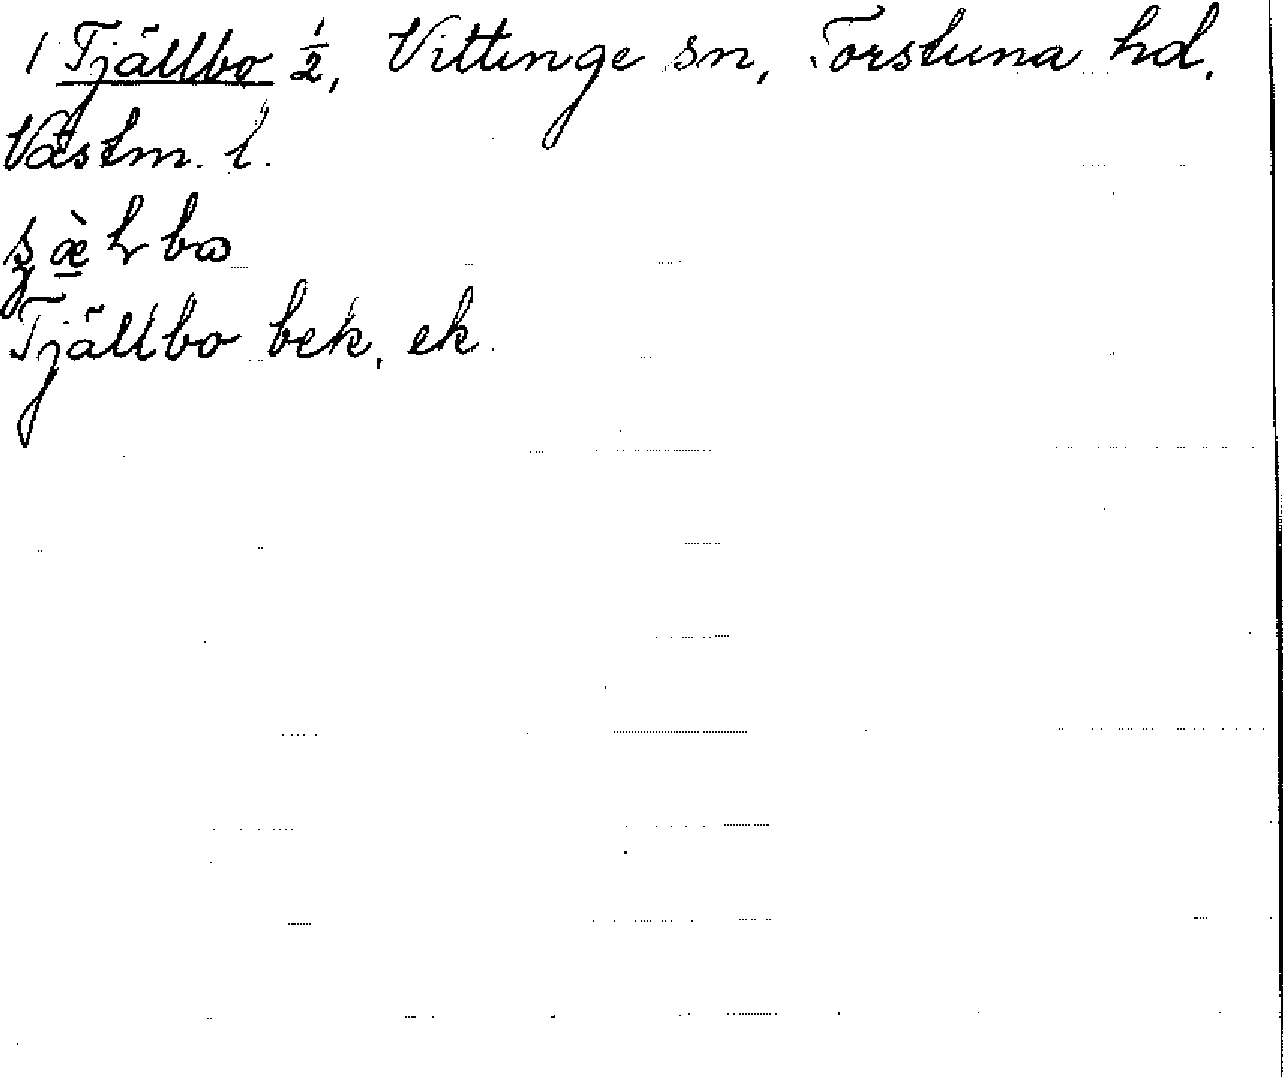 1 Tjällbo 1/2, Vittinge sn, Torstuna hd.
Västm. l.
Tjällbo bek, ek.